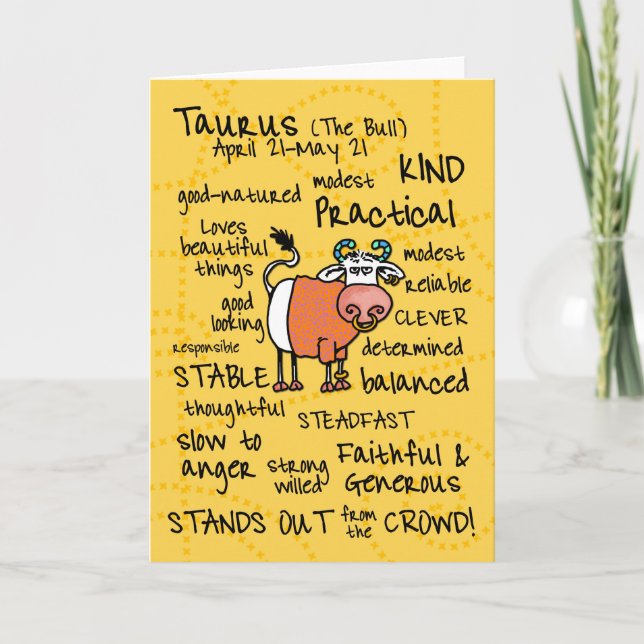 Taurus (The Bull)
April 21-May 21
KIND
modest
good-natured
Practical
Loves
beautiful
things
modest
reliable
good
looking
CLEVER
responsible
determined
STABLE
balanced
thoughtful
STEADFAST
slow to
anger
strong
willed
Faithful &
Generous
STANDS OUT from the CROWD!